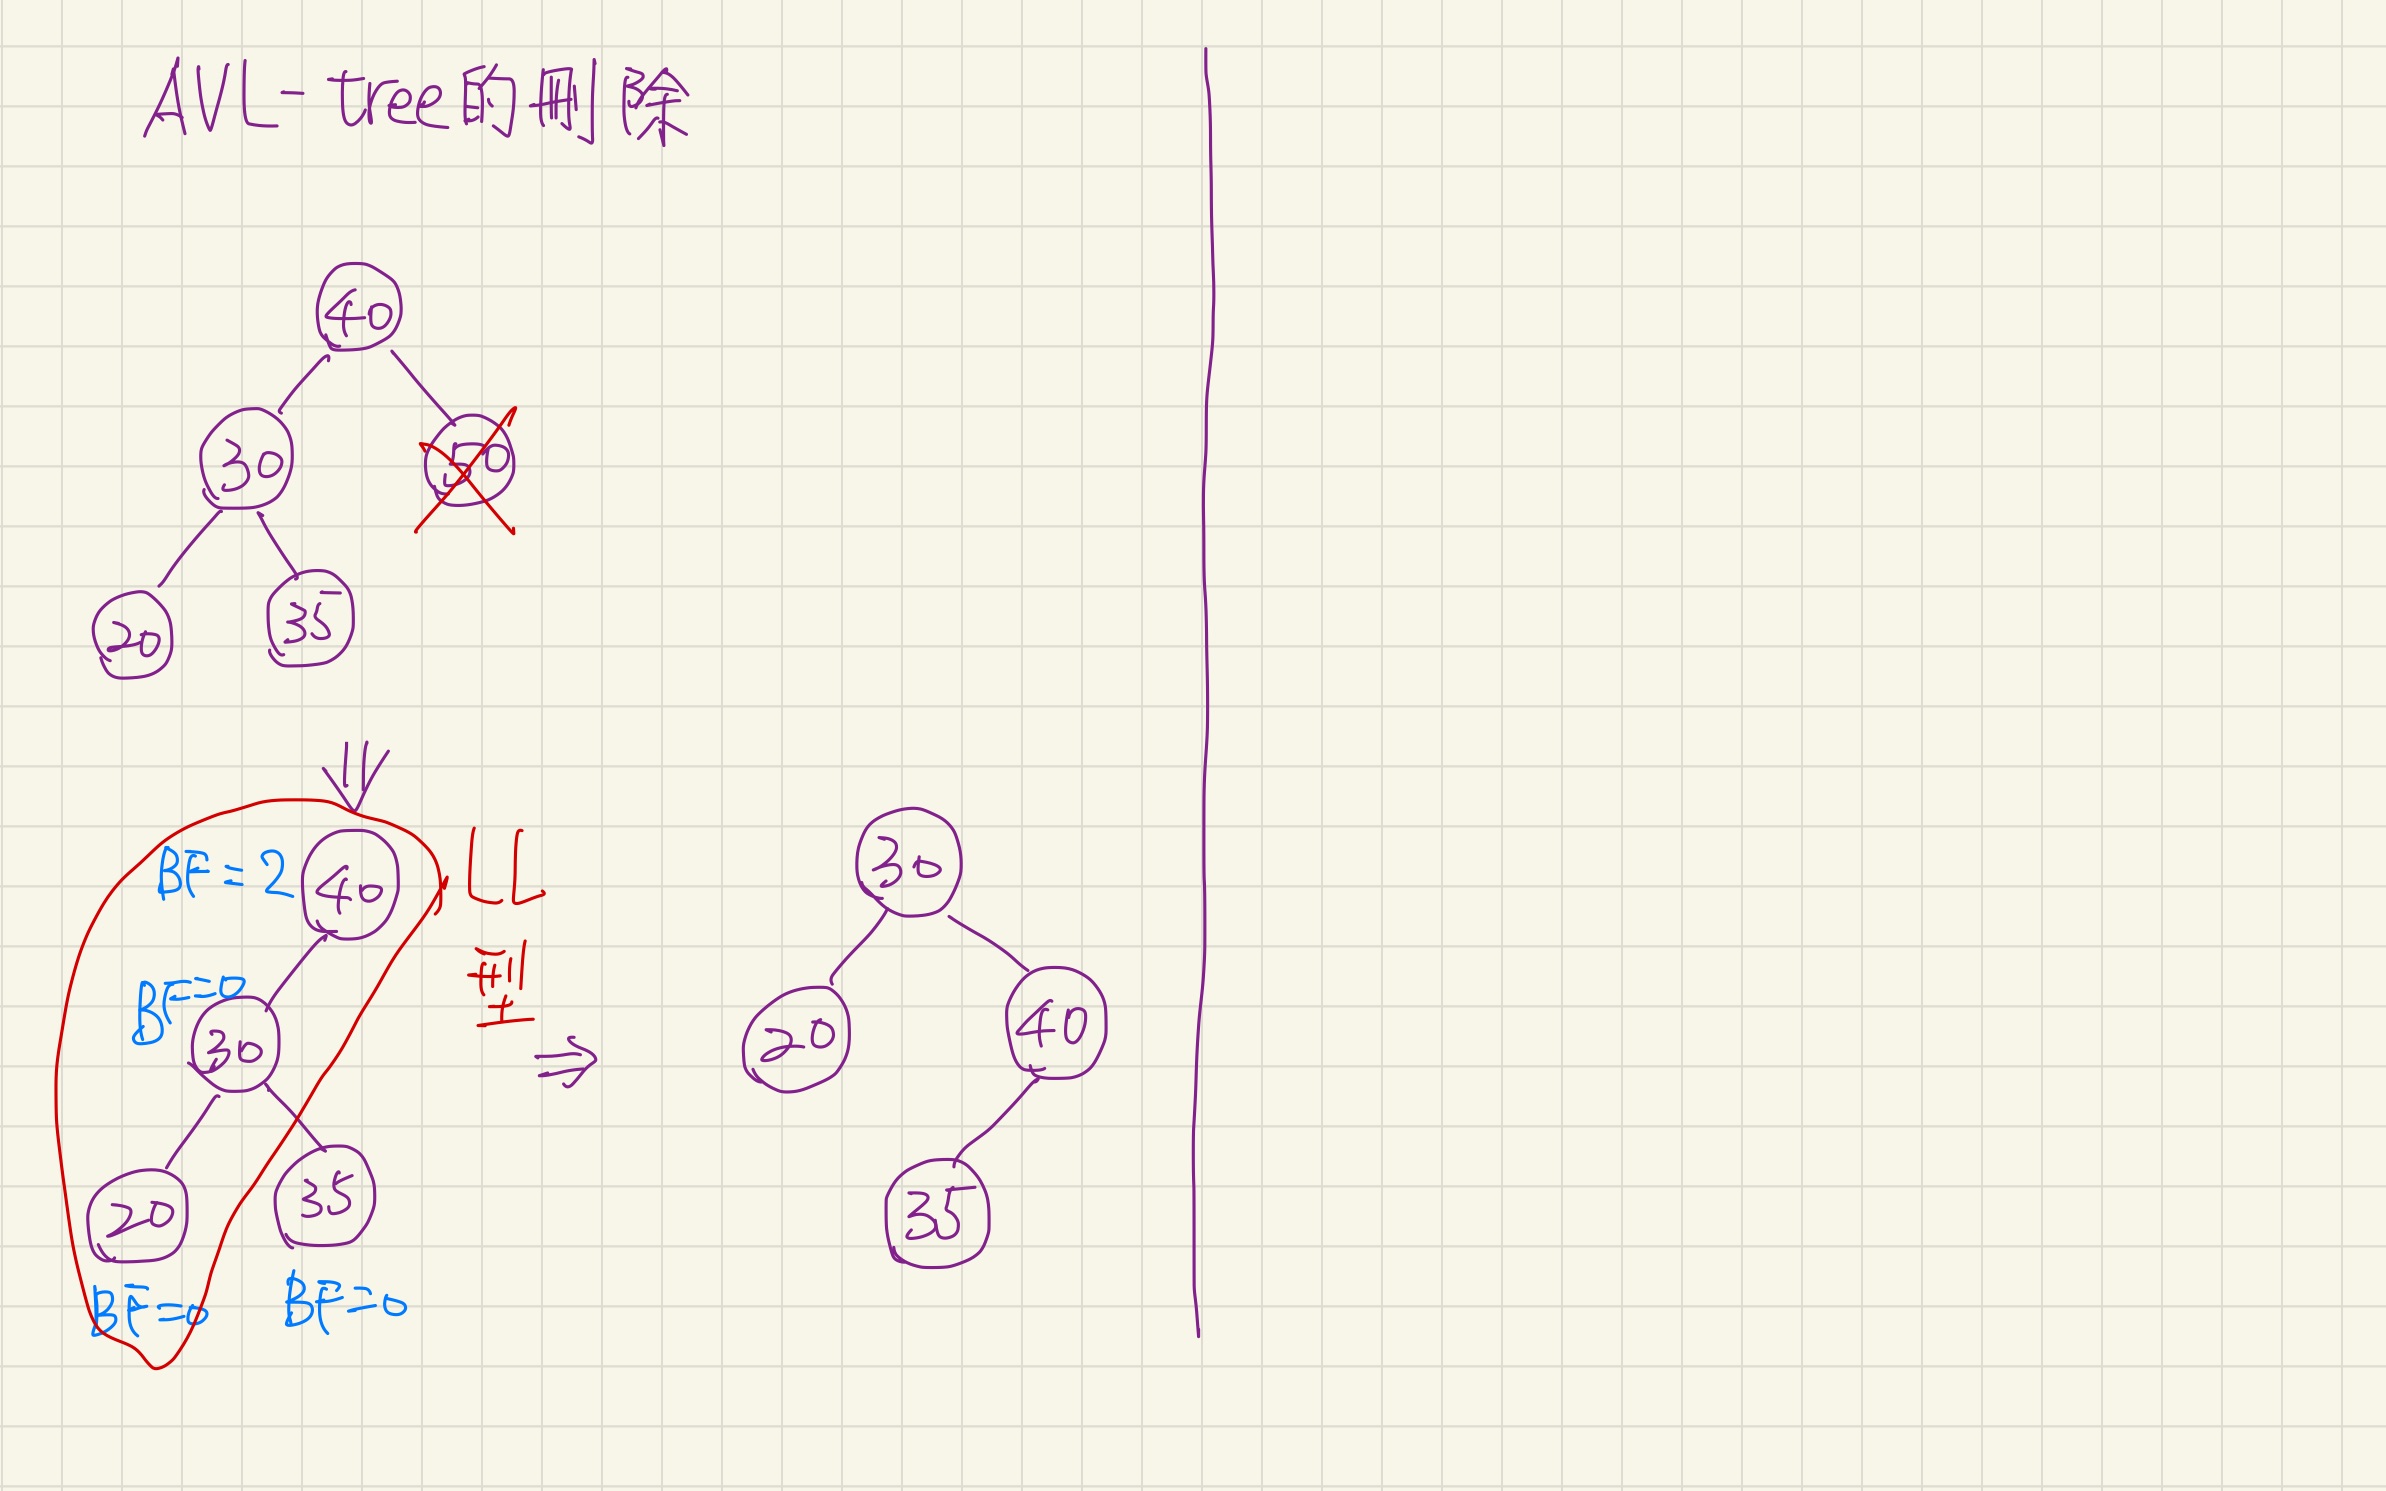 AVL-tree的刪除
40
30
50
20
35
BF=2
40
LL
BF=0
30
型
20
35
BF=0
BF=0
30
20
40
35